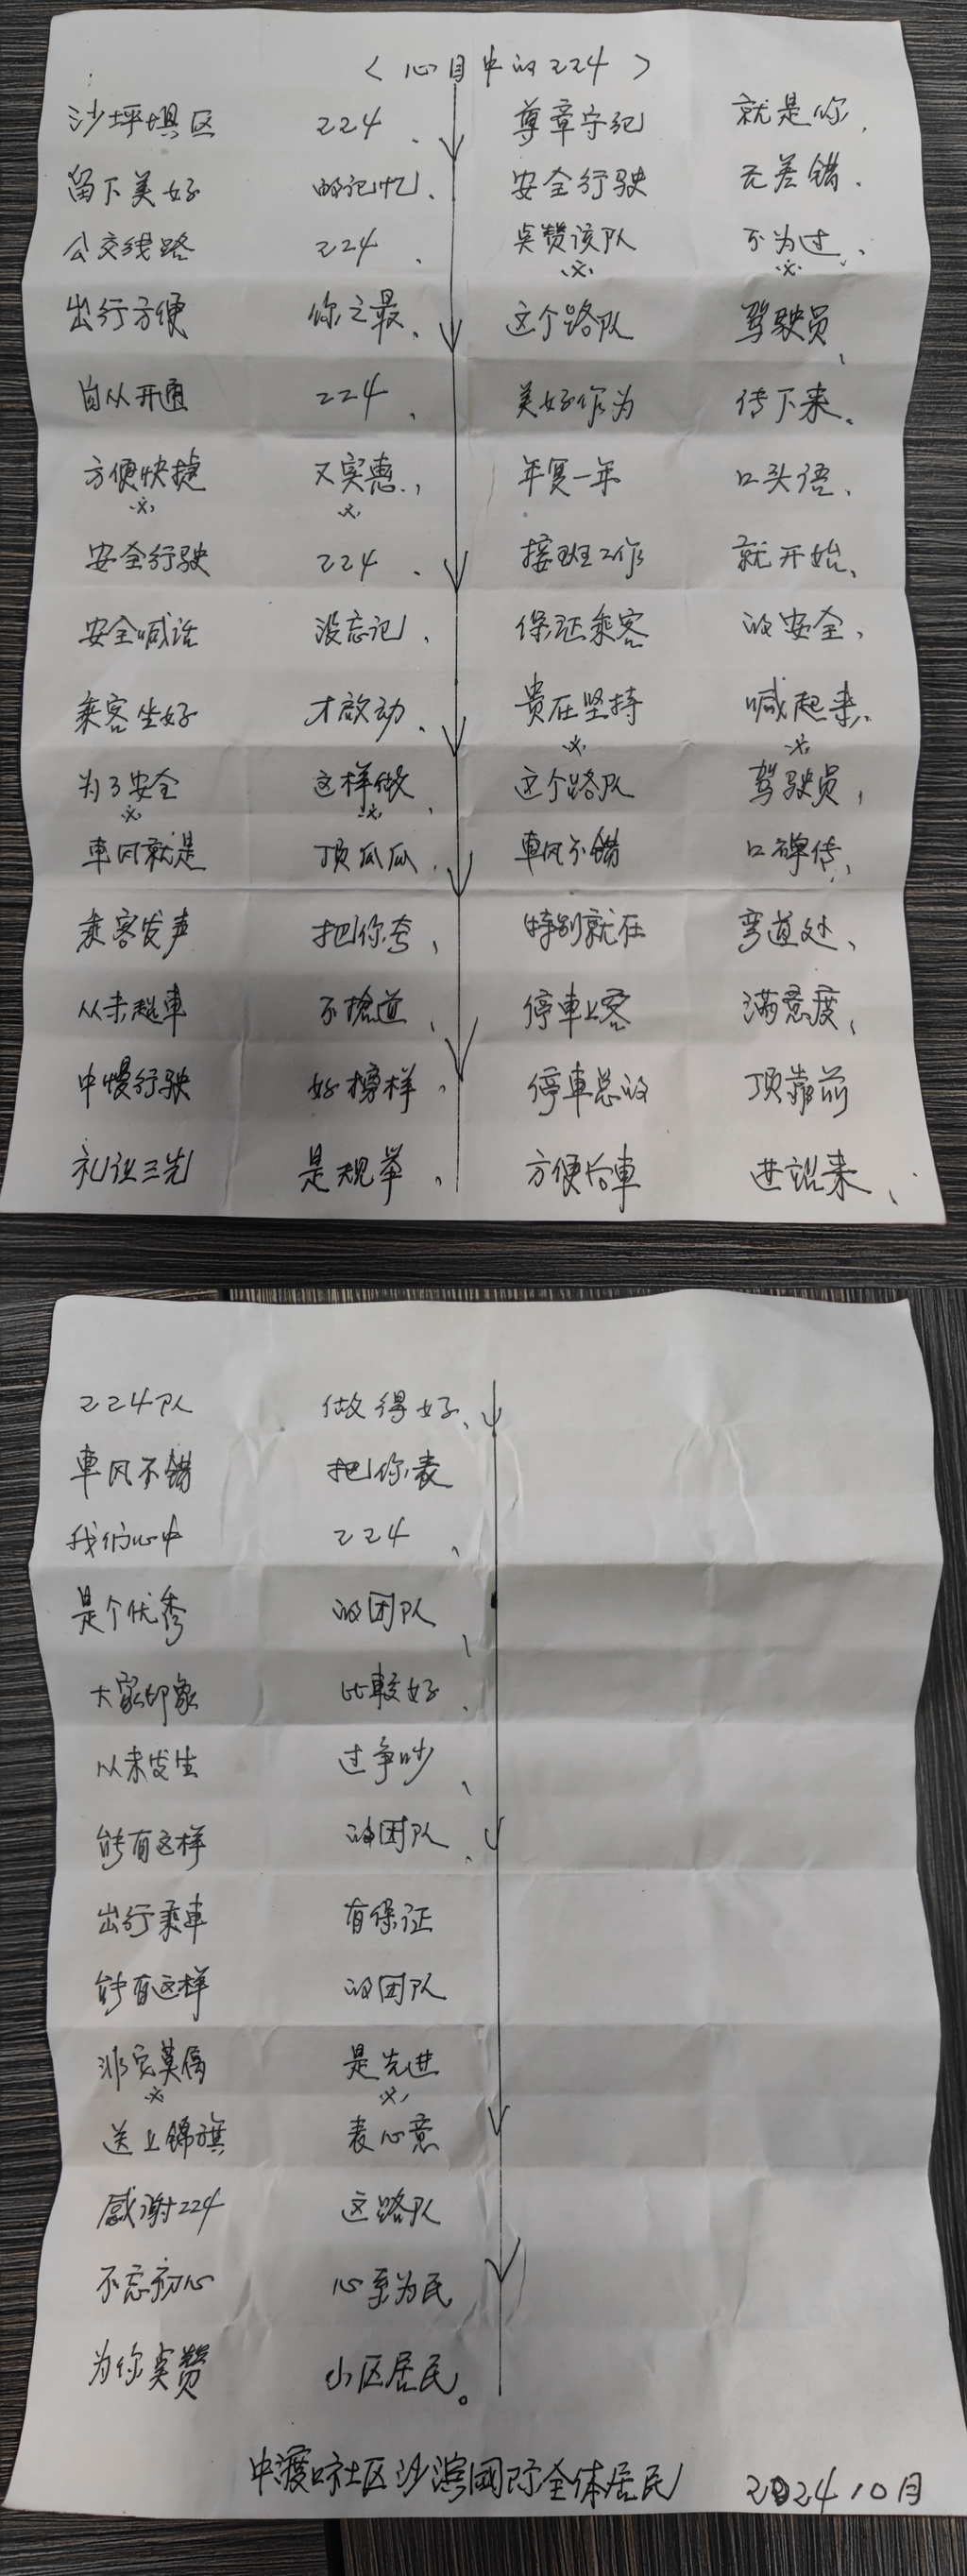 《心目中的224》
沙坪坝区 224、
留下美好 的记忆、
公交线路 224、
出行方便 你之最、
自从开通 224、
方便快捷 又实惠、
安全行驶 224、
安全喊话 没忘记、
乘客坐好 才启动、
为了安全 这样做、
車风就是 顶呱呱、
乘客发声 把你夸、
从未超車 不搶道、
中慢行驶 好榜样、
礼让三先 是规举、
尊章守纪 就是你、
安全行驶 无差错、
点赞该队 不为过、
这个路队 驾驶员、
美好作为 传下来。
年复一年 口头语、
接班工作 就开始、
保证乘客 的安全、
贵在坚持 喊起来、
这个路队 驾驶员、
車风不错 口碑传、
特别就在 弯道处、
停車上客 满意度、
停車总的 顶靠前
方便后車 进站来、
224队 做得好、
車风不错 把你表
我们心中 224、
是个优秀 的团队、
大家印象 比較好、
从未发生 过争吵、
能有这样 的团队、
出行乘車 有保证
能有这样 的团队
非它莫属 是先进
送上锦旗 表心意
感谢224 这路队
不忘初心 心至为民
为你点赞 小区居民。
中渡口社区沙滨國际全体居民 2024 10月